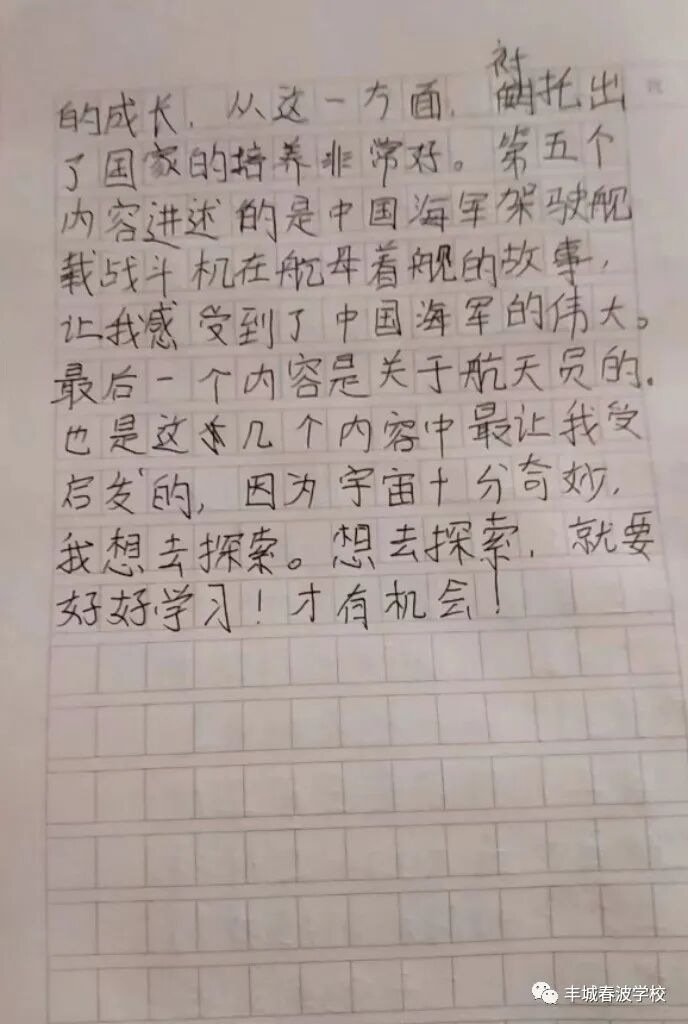 的成长，从这一方面，衬托出
了国家的培养非常好。第五个
内容进述的是中国海军架驶舰
载战斗机在航母着舰的故事，
让我感受到了中国海军的伟大。
最后一个内容是关于航天员的.
也是这几个内容中最让我受
启发的，因为宇宙十分奇妙，
我想去探索。想去探索，就要
好好学习！才有机会！
丰城春波学校